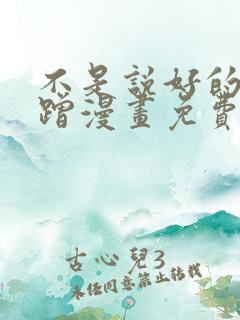 不是說好的
蹭漫畫免費
古心兒3
未经同意禁止转载